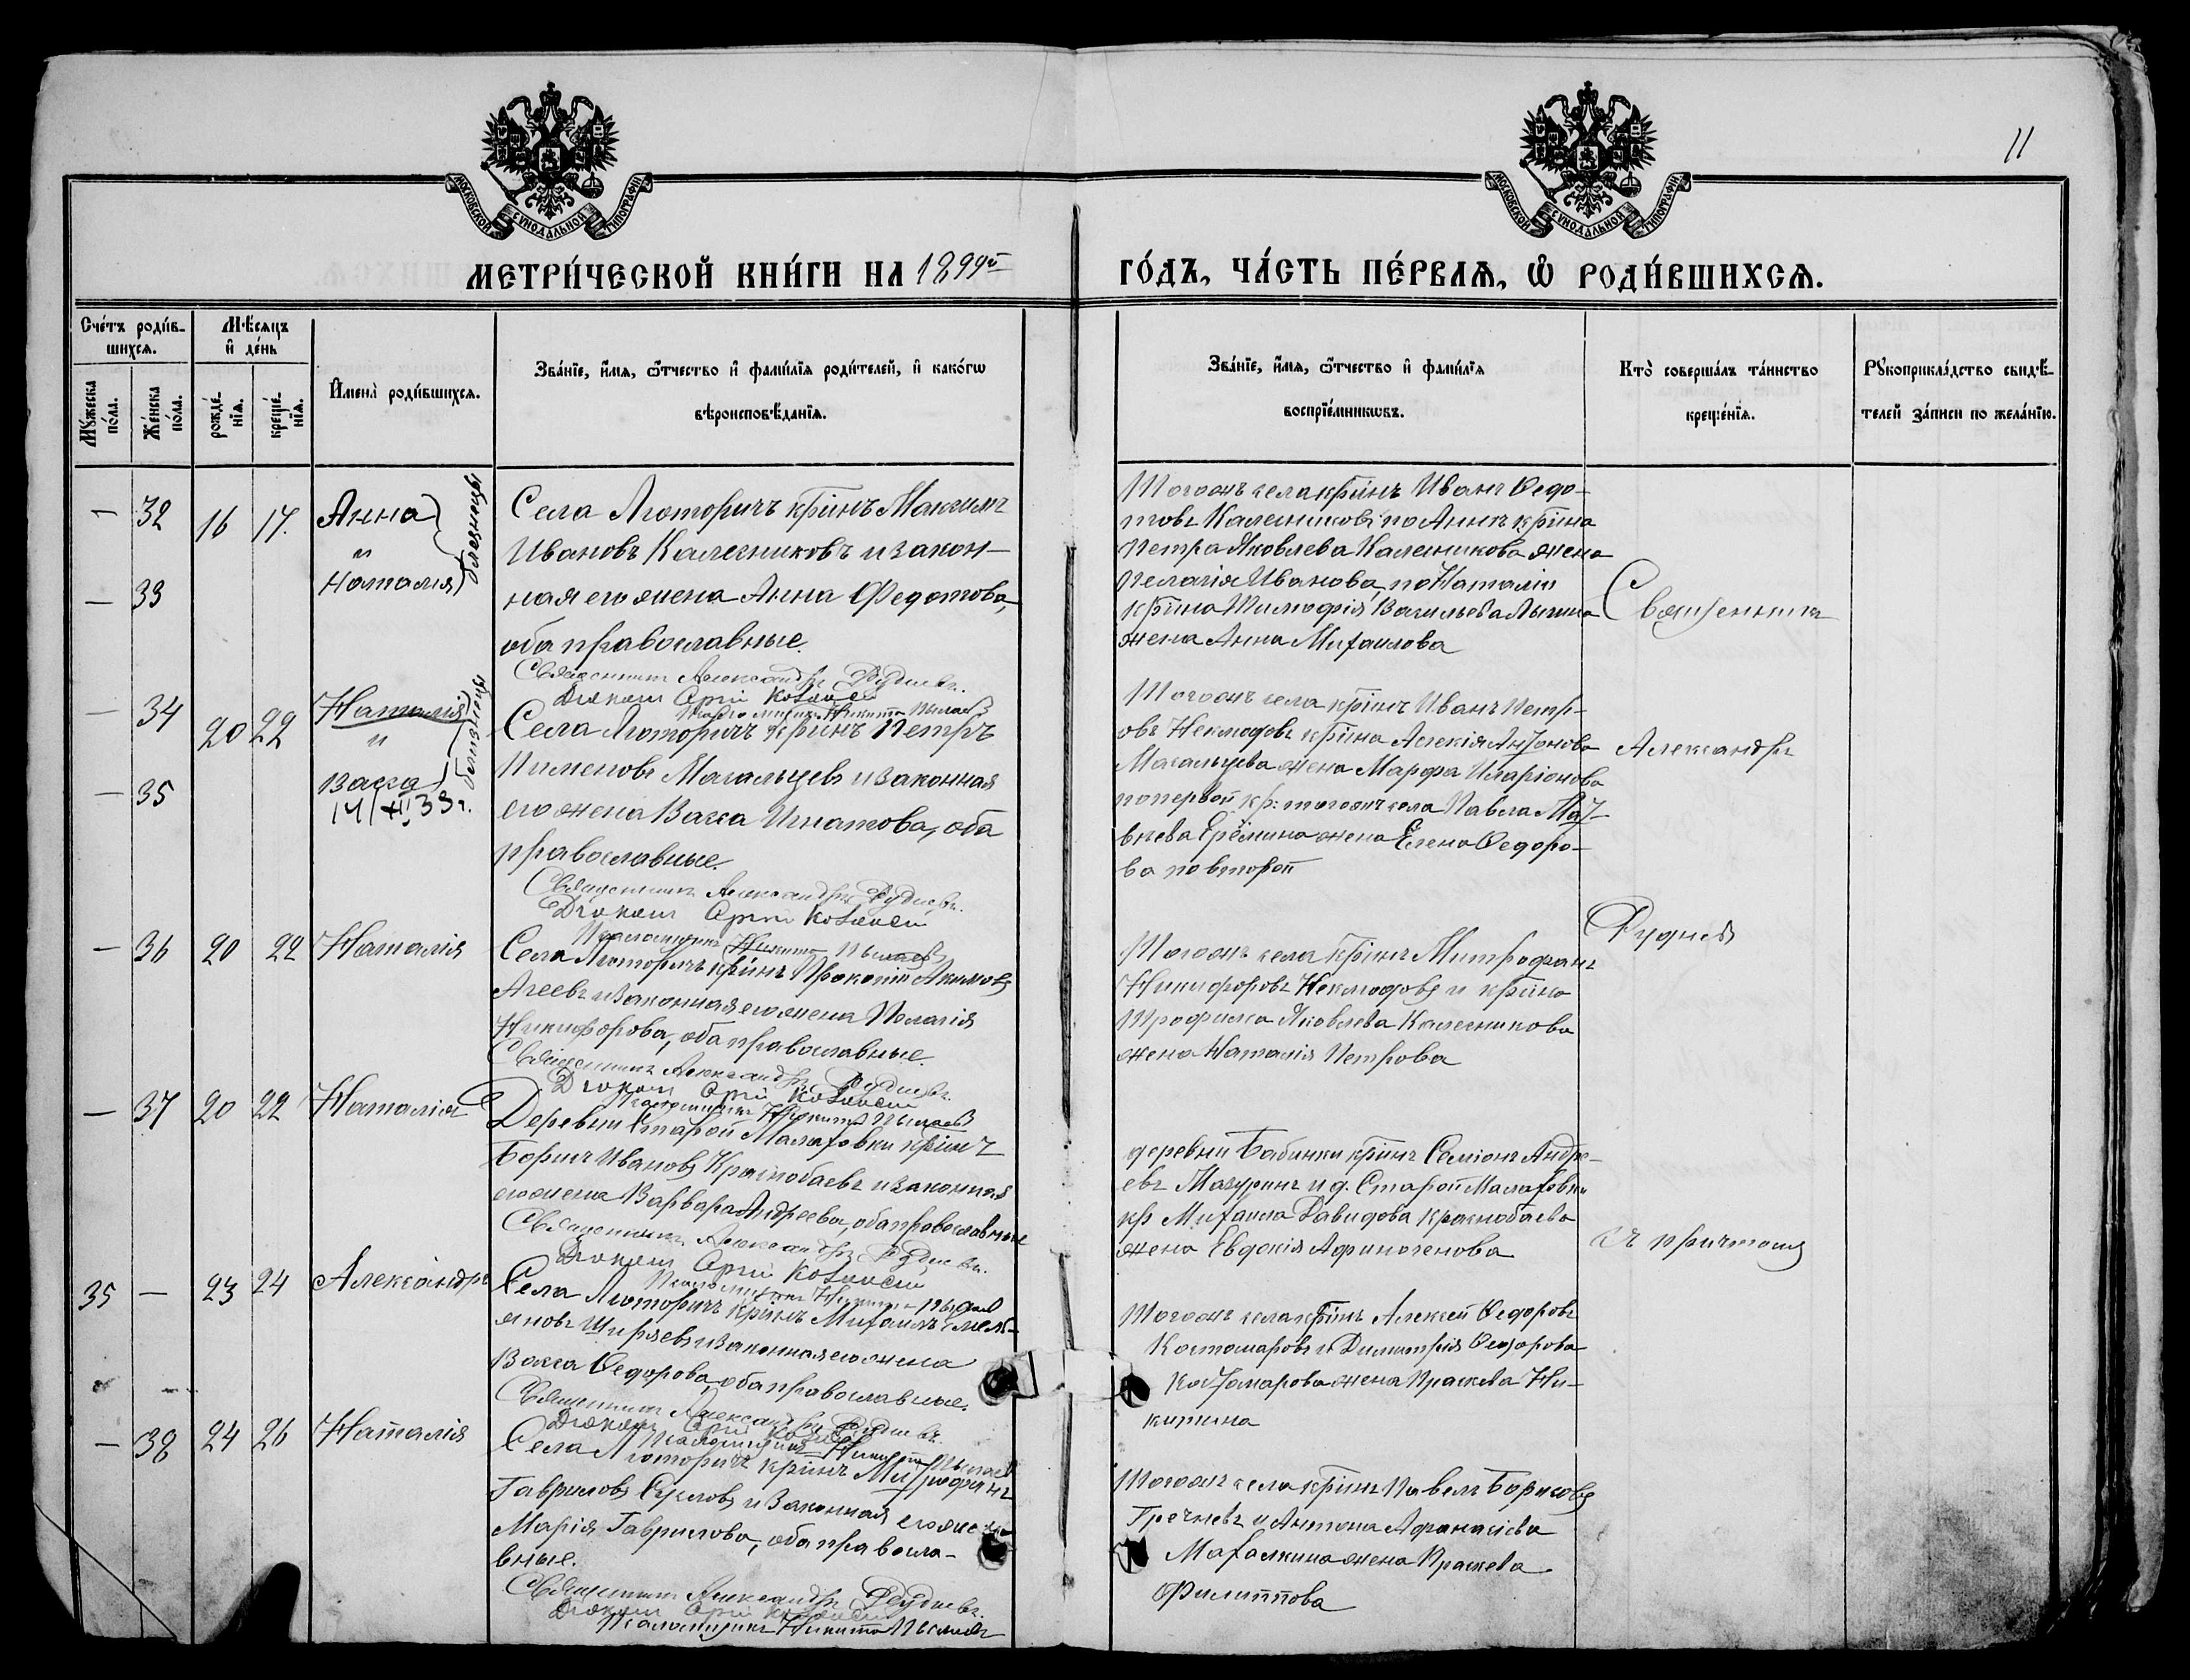 11
МОСКОВСКОЙ СУНОДАЛЬНОЙ ТИПОГРАФІИ
МОСКОВСКОЙ СУНОДАЛЬНОЙ ТИПОГРАФІИ
МЕТРИ́ЧЕСКОЙ КНИ́ГИ НА 1899й
ГО́ДЪ, ЧА́СТЬ ПЕ́РВАѦ, Ѡ҆ РОДИ́ВШИХСѦ.
Сче́тъ роди́в-
шихсѧ.
Мѣ́сѧцъ
и҆ де́нь
Мꙋ́жеска
по́ла.
Же́нска
по́ла.
рожде́-
нїѧ.
креще́-
нїѧ.
И҆мена̀ роди́вшихсѧ.
Зва́нїе, и҆́мѧ, ѻ҆́тчество и҆ фами́лїѧ роди́телей, и҆ како́гѡ
вѣроисповѣ́данїѧ.
Зва́нїе, и҆́мѧ, ѻ҆́тчество и҆ фами́лїѧ
воспрїе́мникѡвъ.
Кто̀ соверша́лъ та́инство
креще́нїѧ.
Рꙋкоприкла́дство свидѣ́-
телей за́писи по жела́нїю.
— 32 16 17. Анна
и
— 33 Наталія
близнецы
Села Люторичъ крⷭ҇інъ Максимъ
Ивановъ Калесниковъ и закон-
ная его жена Анна Федотова,
оба православные.
Священникъ Александръ Рудневъ.
Діаконъ Сергій
Псаломщикъ Никита
Тогожъ села крⷭ҇інъ Иванъ Ѳедо-
товъ Калесниковъ по Аннѣ крⷭ҇іна
Петра Яковлева Калесникова жена
Пелагія Иванова, по Наталіи
крⷭ҇іна Тимофія Васильева
жена Анна Михаилова
Священникъ
— 34 20 22 Наталія
и
— 35 Васса
близнецы
14/XII 33 г.
Села Люторичъ крⷭ҇інъ Петръ
Пименовъ Магальцевъ и законная
его жена Васса Игнатова, оба
православные.
Священникъ Александръ Рудневъ.
Діаконъ Сергій
Псаломщикъ Никита
Тогожъ села крⷭ҇інъ Иванъ Петр-
овъ Неклюдовъ крⷭ҇іна Алексія Антонова
Магальцева жена Марфа Иларіонова
по первой кр: тогожъ села Павла Мат-
вѣева Ерёмина жена Елена Ѳедоро-
ва по второй
Александръ
— 36 20 22 Наталія
Села Люторичъ крⷭ҇інъ Прокопій Акимовъ
Агеевъ и законная его жена Пелагія
Никифорова, оба православные.
Священникъ Александръ Рудневъ.
Діаконъ Сергій
Псаломщикъ Никита
Тогожъ села крⷭ҇інъ Митрофанъ
Никифоровъ Неклюдовъ и крⷭ҇іна
Трофима Яковлева Калесникова
жена Наталія Петрова
Рудневъ
— 37 20 22 Наталія
Деревни Старой Малаховки крⷭ҇інъ
Борисъ Ивановъ Краснобаевъ и законная
его жена Варвара Андреева, оба православные
Священникъ Александръ Рудневъ.
Діаконъ Сергій
Псаломщикъ Никита
деревни Бабинки крⷭ҇інъ Семіонъ Андре-
евъ Мазуринъ и д. Старой Малаховки
кр Михаила Давидова Краснобаева
жена Евдокія Афиногенова
съ причтомъ
35 — 23 24 Александръ
Села Люторичъ крⷭ҇інъ Михаилъ Емель-
яновъ Ширяевъ и законная его жена
Васса Ѳедорова, оба православные.
Священникъ Александръ Рудневъ.
Діаконъ Сергій
Псаломщикъ Никита
Тогожъ села крⷭ҇інъ Алексей Ѳедоровъ
Костомаровъ и Димитрія Ѳедорова
Костомарова жена Праскева Ни-
китина
— 38 24 26 Наталія
Села Люторичъ крⷭ҇інъ Митрофанъ
Гавриловъ Сусловъ и законная его жена
Марія Гаврилова, оба правосла-
вные.
Священникъ Александръ Рудневъ.
Діаконъ Сергій
Псаломщикъ Никита
Тогожъ села крⷭ҇інъ Павелъ Борисовъ
Гречневъ и Антона Афанасіева
Махалкина жена Праскева
Филиппова